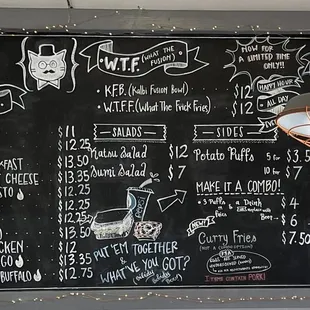 W.T.F. (WHAT THE FUSION)
• K.F.B. (Kalbi Fusion Bowl) $12
• W.T.F.F. (What The Frick Fries) $12
NOW FOR A LIMITED TIME ONLY!!
HAPPY HOUR
ALL DAY
$11
$12.25
FAST $13.50
T CHEESE $13.35
STO $12.25
$12.25
$12.25
$13.50
CKEN $12
GO $13.35
BUFFALO $12.75
SALADS
Katsu Salad $12
Sumi Salad $7
PUT 'EM TOGETHER & WHAT'VE YOU GOT?
SIDES
Potato Puffs 5 for $3.5
10 for $7
MAKE IT A COMBO!
• 3 Puffs or Fries & a Drink $4
Beer $6
NEW!
Curry Fries $7.50
ITEMS CONTAIN PORK!